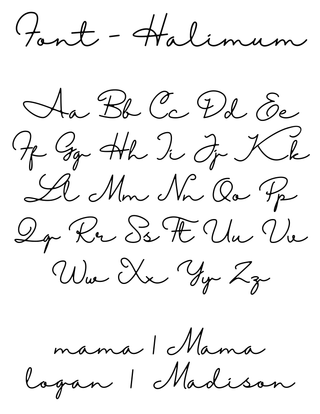 Font - Halimum
Aa Bb Cc Dd Ee
Ff Gg Hh Ii Jj Kk
Ll Mm Nn Oo Pp
Qq Rr Ss Tt Uu Vv
Ww Xx Yy Zz
mama | Mama
logan | Madison